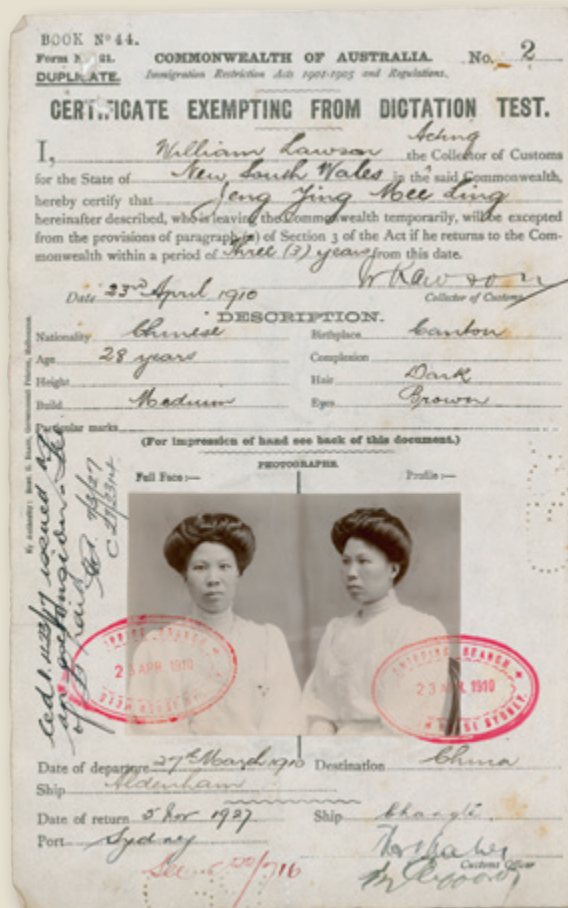 BOOK Nº 44.
Form No. 21. COMMONWEALTH OF AUSTRALIA. No. 2
DUPLICATE. Immigration Restriction Acts 1901-1905 and Regulations.
CERTIFICATE EXEMPTING FROM DICTATION TEST.
Acting
I, William Lawson the Collector of Customs
for the State of New South Wales in the said Commonwealth,
hereby certify that Jeng Ying Mee Ling
hereinafter described, who is leaving the Commonwealth temporarily, will be excepted
from the provisions of paragraph (a) of Section 3 of the Act if he returns to the Com-
monwealth within a period of Three (3) years from this date.
W Lawson
Date 23rd April 1910 Collector of Customs
DESCRIPTION.
Nationality Chinese Birthplace Canton
Age 28 years Complexion
Height Hair Dark
Build Medium Eyes Brown
Particular marks
(For impression of hand see back of this document.)
PHOTOGRAPHS.
Full Face:— Profile:—
23 APR 1910
SHIPPING BRANCH
23 1910
SYDNEY
Date of departure 27th March 1910 Destination China
Ship Aldenham
Date of return 5 Nov 1927. Ship Changte.
Port Sydney
Customs Officer
See /716
By Authority:
issued
C 27/2314